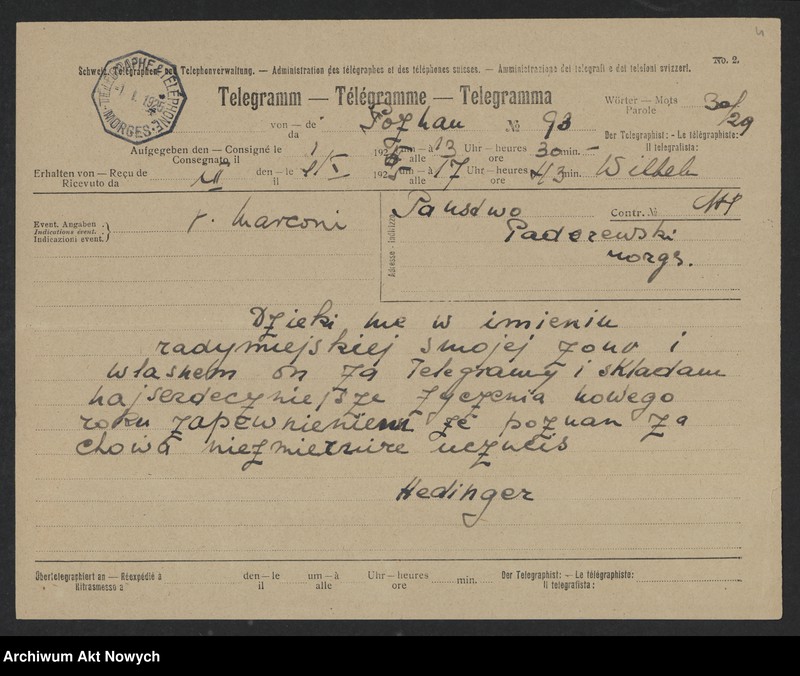 No. 2.
Schweiz. Telegraphen- und Telephonverwaltung. — Administration des télégraphes et des téléphones suisses. — Amministrazione dei telegrafi e dei telefoni svizzeri.
TÉLÉGRAPHE & TÉLÉPHONE
1925
MORGES
Telegramm — Télégramme — Telegramma
Wörter — Mots
Parole
30/29
von — de
da
Pozhan
№ 93
Der Telegraphist: — Le télégraphiste:
Il telegrafista:
Aufgegeben den — Consigné le
Consegnato il
1
192
um — à 13 Uhr — heures 30 min.
alle ore
Wilhelm
Erhalten von — Reçu de
Ricevuto da
den — le
il
1/I
1925 um — à 17 Uhr — heures 43 min.
alle ore
Event. Angaben
Indications évent.
Indicazioni event.
v. Marconi
Adresse - Indirizzo
Państwo
Contr. №
Paderewski
morgs.
Dzieki me w imieniu
radymiejskiej smojej zonv i
wlashem on za Telegramy i skladam
hajserdeczniejsze zyczenia nowego
roku zapewnieniem ze poznan za
chowa niezmierzure uczucis
Hedinger
Übertelegraphiert an — Réexpédié à
Ritrasmesso a
den — le
il
um — à
alle
Uhr — heures
ore
min.
Der Telegraphist: — Le télégraphiste:
Il telegrafista:
Archiwum Akt Nowych